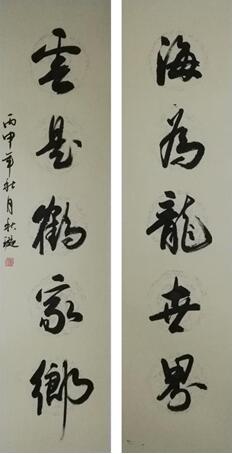 海為龍世界
雲是鶴家鄉
丙申年秋月秋璇